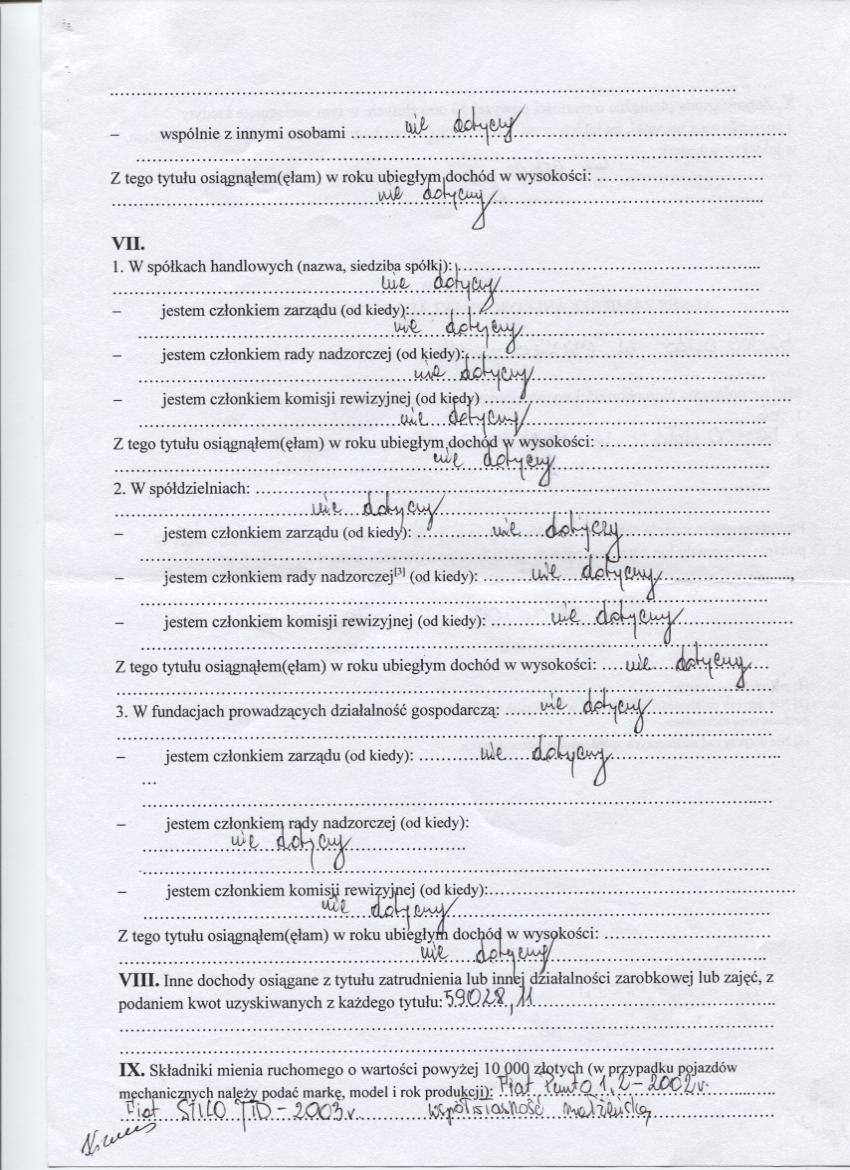 – wspólnie z innymi osobami nie dotyczy
Z tego tytułu osiągnąłem(ęłam) w roku ubiegłym dochód w wysokości:
nie dotyczy
VII.
1. W spółkach handlowych (nazwa, siedziba spółki):
nie dotyczy
– jestem członkiem zarządu (od kiedy):
nie dotyczy
– jestem członkiem rady nadzorczej (od kiedy):
nie dotyczy
– jestem członkiem komisji rewizyjnej (od kiedy)
nie dotyczy
Z tego tytułu osiągnąłem(ęłam) w roku ubiegłym dochód w wysokości:
nie dotyczy
2. W spółdzielniach:
nie dotyczy
– jestem członkiem zarządu (od kiedy): nie dotyczy
– jestem członkiem rady nadzorczej[3] (od kiedy): nie dotyczy
– jestem członkiem komisji rewizyjnej (od kiedy): nie dotyczy
Z tego tytułu osiągnąłem(ęłam) w roku ubiegłym dochód w wysokości: nie dotyczy
3. W fundacjach prowadzących działalność gospodarczą: nie dotyczy
– jestem członkiem zarządu (od kiedy): nie dotyczy
...
– jestem członkiem rady nadzorczej (od kiedy):
nie dotyczy
– jestem członkiem komisji rewizyjnej (od kiedy):
nie dotyczy
Z tego tytułu osiągnąłem(ęłam) w roku ubiegłym dochód w wysokości:
nie dotyczy
VIII. Inne dochody osiągane z tytułu zatrudnienia lub innej działalności zarobkowej lub zajęć, z
podaniem kwot uzyskiwanych z każdego tytułu: 59028,11
IX. Składniki mienia ruchomego o wartości powyżej 10 000 złotych (w przypadku pojazdów
mechanicznych należy podać markę, model i rok produkcji): Fiat Punto 1,2 – 2002 r.
Fiat STILO JTD – 2003 r. współwłasność małżeńska